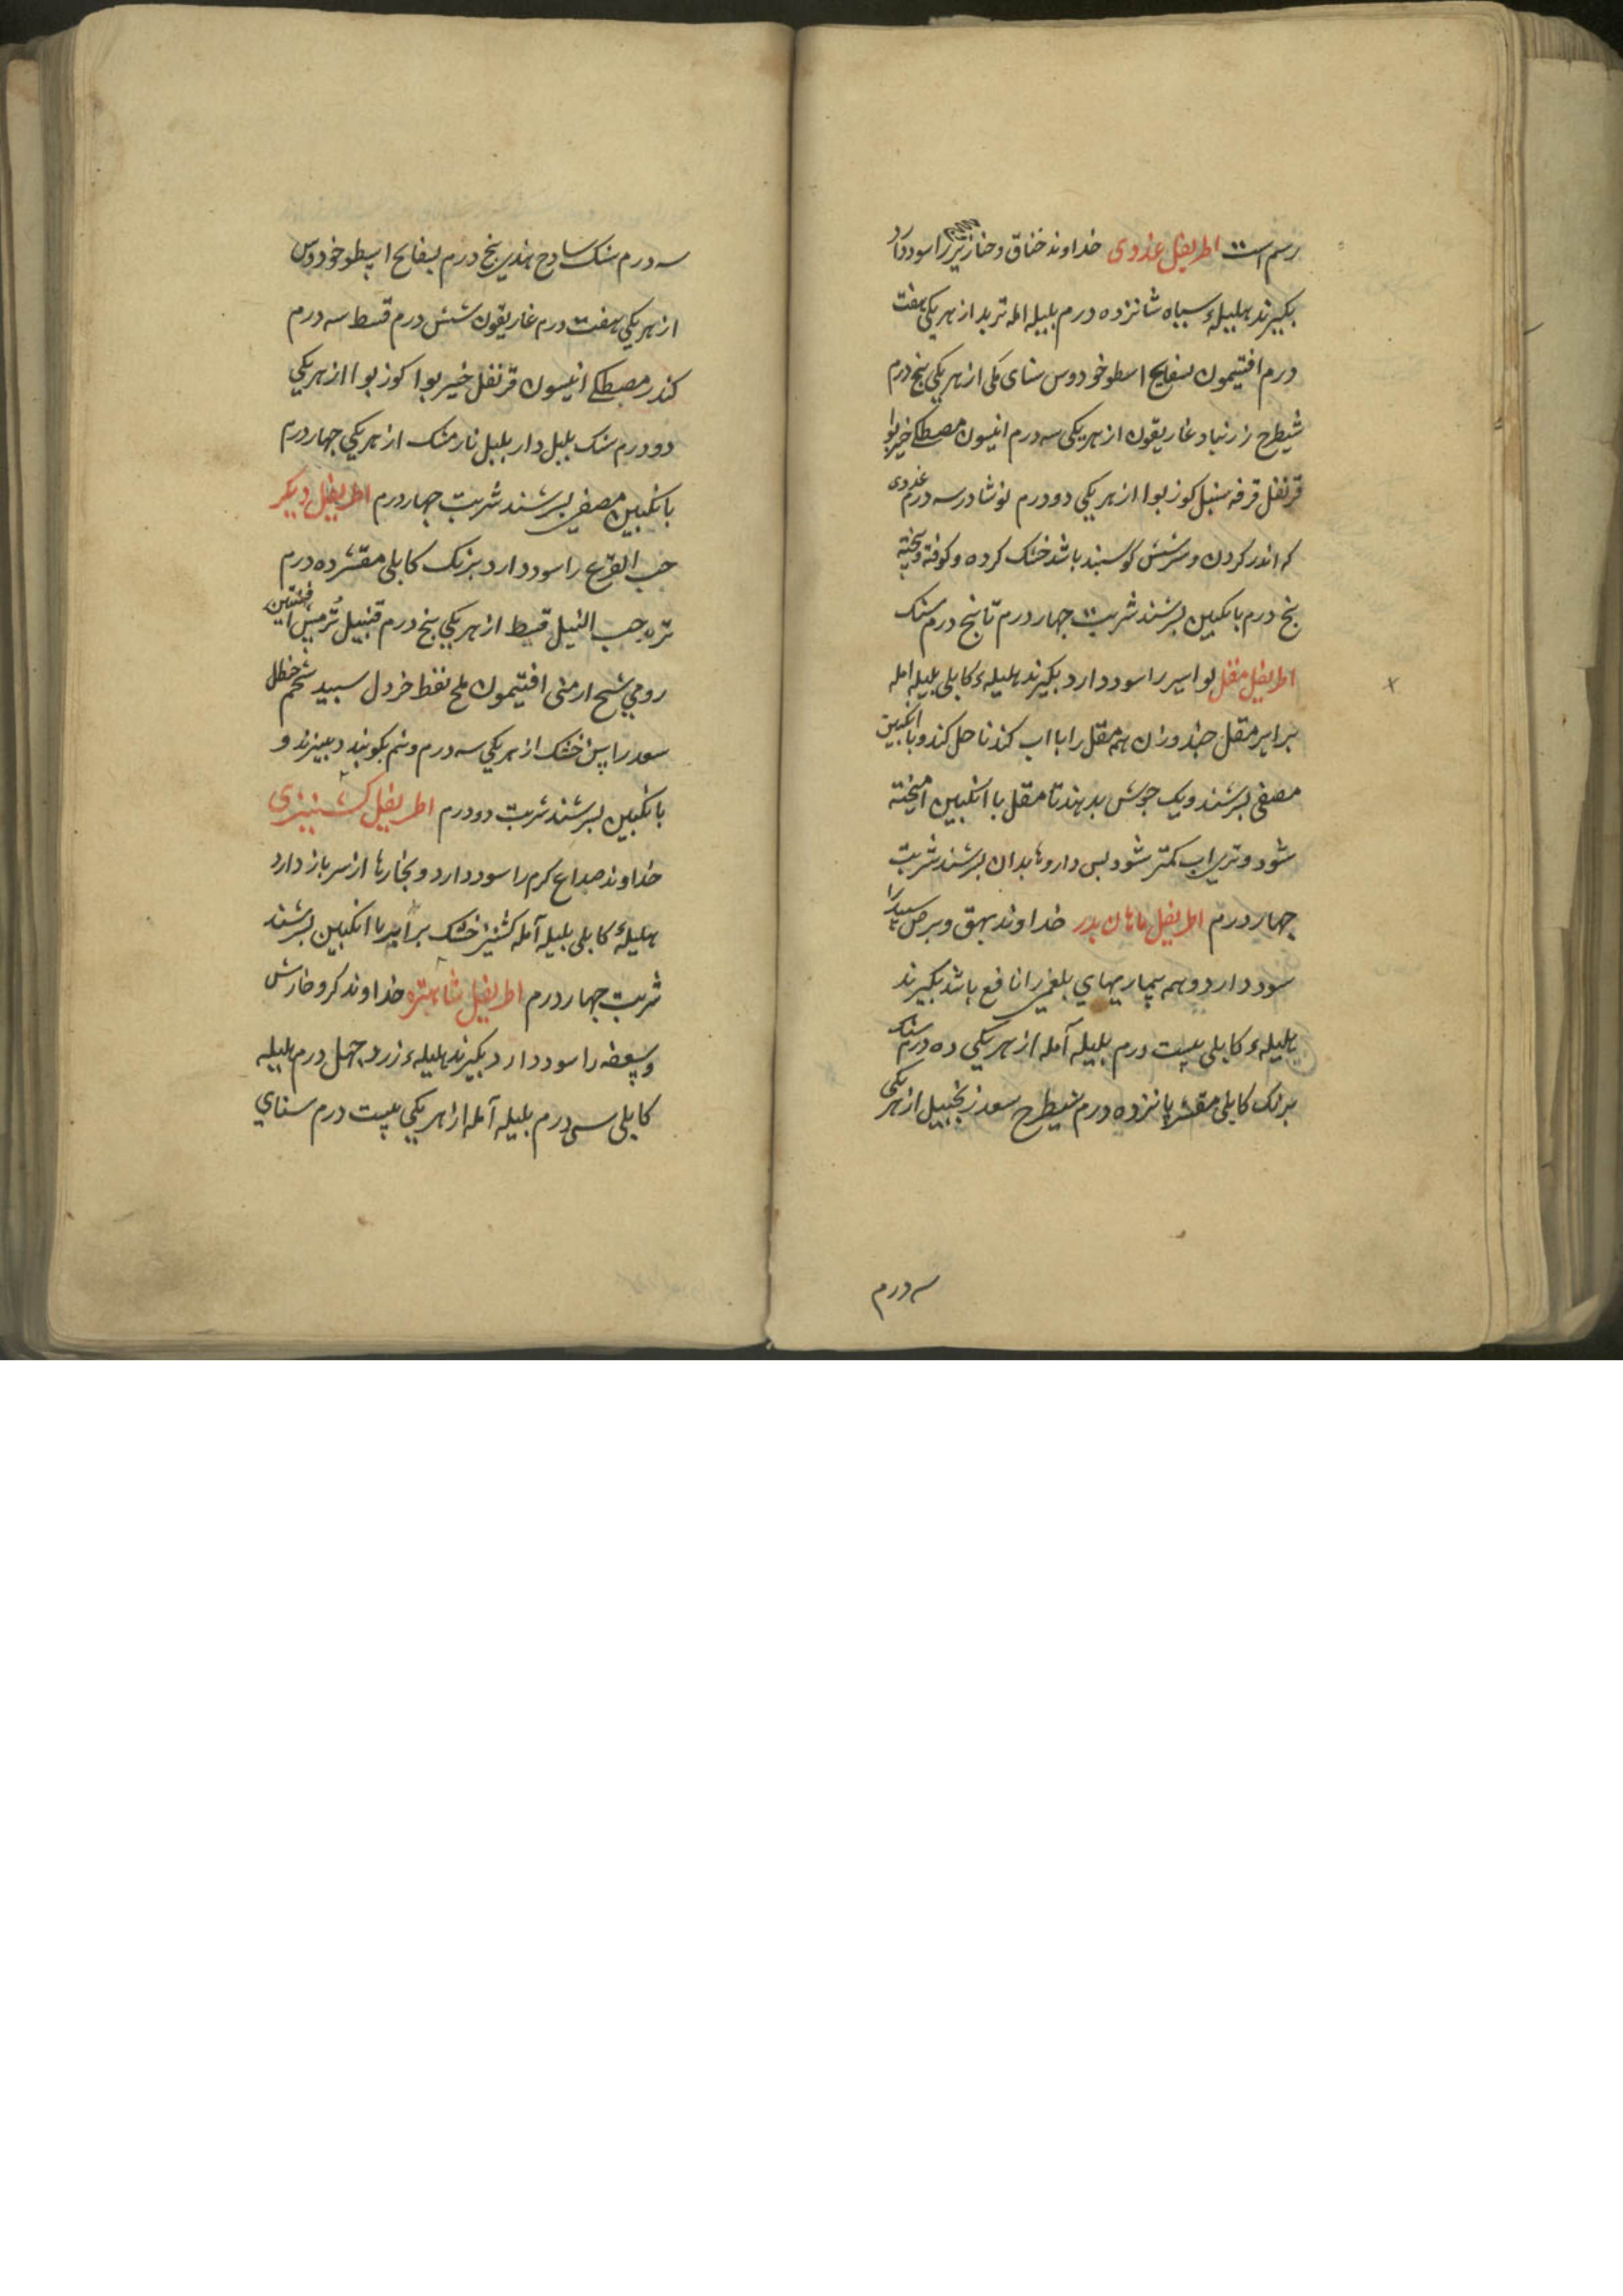 رسم است اطریفل غددی خداوند خناق و خنازیر را سود دارد
بکیرند هلیلهٔ سیاه شانزده درم بلیله امله تربد از هر یکی هفت
درم افتیمون بسفایج اسطوخودوس سنای مکی از هر یکی پنج درم
شیطرج زرنباد غاریقون از هر یکی سه درم انیسون مصطکی خیربوا
قرنفل قرفه سنبل کوزبوا از هر یکی دو درم نوشادر سه درم غددی
که اندر کردن و شش کوسبند باشد خشک کرده و کوفته و بیخته
پنج درم بانکبین بسرشند شربت چهار درم تا پنج درم سنک
اطریفل مقل بواسیر را سود دارد بکیرند هلیلهٔ کابلی بلیله امله
برابر مقل چند وزن همه مقل را با اب کندنا حل کند و با انکبین
مصفی بسرشند و یک جوش بدهند تا مقل با انکبین امیخته
شود و تری اب کمتر شود بس داروها بدان بسرشند شربت
چهار درم اطریفل خداوند بهق و برص سبید را
سود دارد و همه بیماریهای بلغمی را نافع باشد بکیرند
هلیلهٔ کابلی بیست درم بلیله آمله از هر یکی ده درم سنک
برنک کابلی مقشر پانزده درم شیطرج سعد زنجبیل از هر یکی
سه درم
سه درم سنک سادج هندی پنج درم بسفایج اسطوخودوس
از هر یکی هفت درم غاریقون شش درم قسط سه درم
کندر مصطکی انیسون قرنفل خیربوا کوزبوا از هر یکی
دو درم سنک بلبل داربلبل نارمشک از هر یکی چهار درم
بانکبین مصفی بسرشند شربت چهار درم اطریفل دیکر
حب القرع را سود دارد برنک کابلی مقشر ده درم
حب النیل قسط از هر یکی پنج درم قنبیل تُرمس افسنتین
رومی شیح ارمنی افتیمون ملح نفط خردل سبید شحم حنظل
سعد راسن خشک از هر یکی سه درم و نیم بکوبند و ببیزند و
بانکبین بسرشند شربت دو درم اطریفل کشنیزی
خداوند صداع کرم را سود دارد و بخارها از سر باز دارد
هلیلهٔ کابلی بلیله آمله کشنیز خشک برابر با انکبین بسرشند
شربت چهار درم اطریفل شاهتره خداوند کر و خارش
و سعفه را سود دارد بکیرند هلیلهٔ زرد چهل درم هلیله
کابلی سی درم بلیله آمله از هر یکی بیست درم سنای